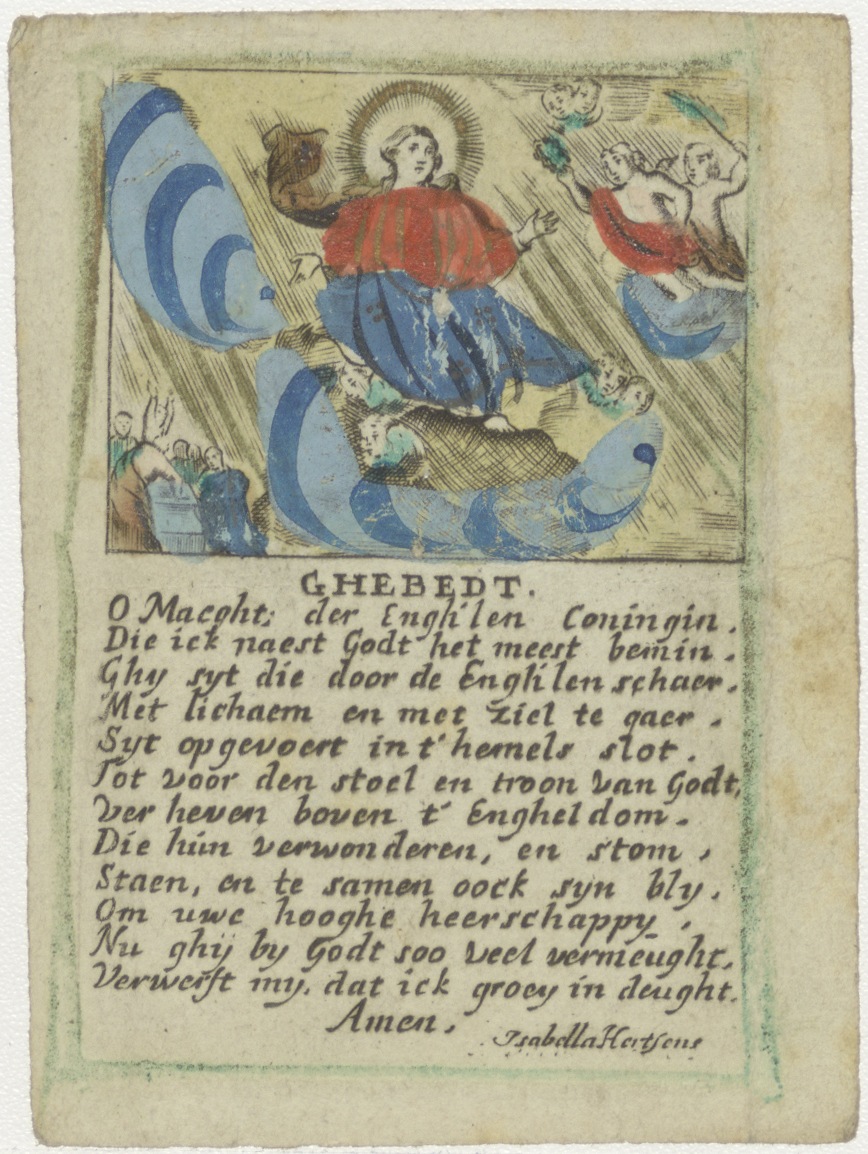 GHEBEDT.
O Macght; der Engh'len Coningin.
Die ick naest Godt het meest bemin.
Ghy syt die door de Engh'len schaer.
Met lichaem en met ziel te gaer.
Syt opgevoert in t' hemels slot.
Tot voor den stoel en troon van Godt,
Ver heven boven t' Engheldom.
Die hun verwonderen, en stom,
Staen, en te samen oock syn bly.
Om uwe hooghe heerschappy,
Nu ghy by Godt soo veel vermeught,
Verwerft my, dat ick groey in deught.
Amen.
Isabella Hertsens